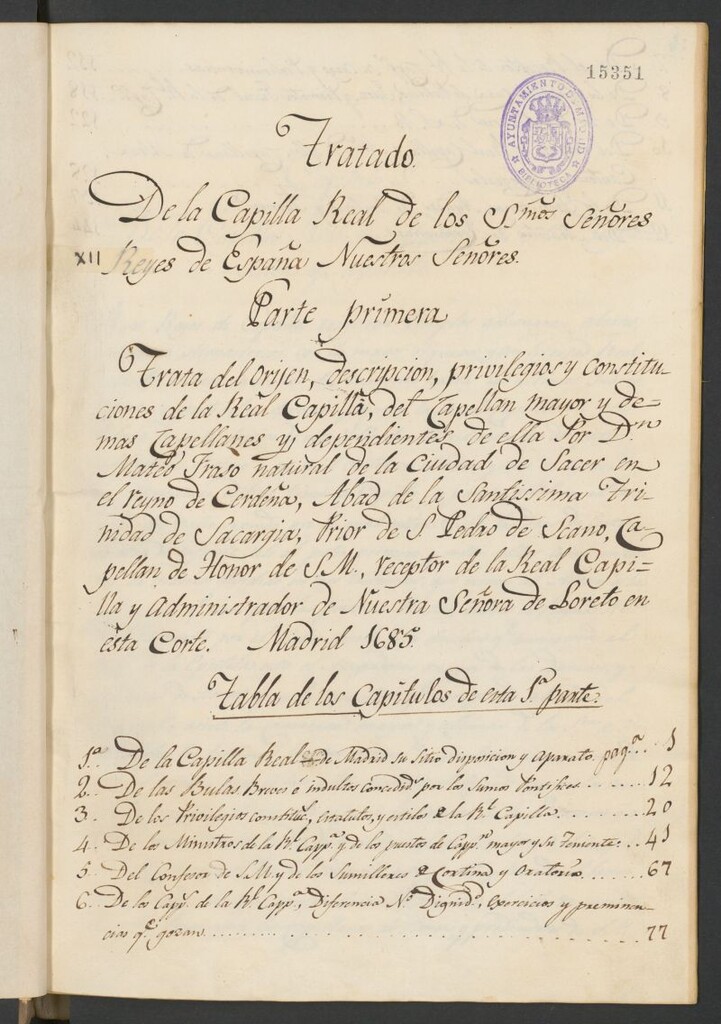 15351
AYUNTAMIENTO DE MADRID
BIBLIOTECA
Tratado.
De la Capilla Real de los S.mos Señores
XII Reyes de España Nuestros Señores.
Parte primera
Trata del Orijen, descripcion, privilegios y constitu-
ciones de la Real Capilla, del Capellan mayor y de=
mas Capellanes y dependientes de ella Por D.n
Mateo Fraso natural de la Ciudad de Sacer en
el reyno de Cerdeña, Abad de la Santissima Tri-
nidad de Sacargia, Prior de S Pedro de Scano, Ca-
pellan de Honor de S.M., receptor de la Real Capi-
lla y Administrador de Nuestra Señora de Loreto en
esta Corte. Madrid 1685.
Tabla de los Capitulos de esta 1.a parte.
1.o De la Capilla Real de Madrid su Sitio disposicion y Aparato. pag.a .. 1
2. De las Bulas Breves é indultos concedid.s por los Sumos Pontifices ....... 12
3. De los Privilegios constituc., estatutos, y estilos de la R.l Capilla ....... 20
4. De los Ministros de la R.l Capp.a y de los puestos de Capp.n mayor y su Teniente. .. 41
5. Del Confesor de S.M. y de los Sumilleres de Cortina y Oratorio ....... 67
6. De los Capp.s de la R.l Capp.a, Diferencia N.o Dignid.s, exercicios y preminen-
cias q.e gozan ....... 77